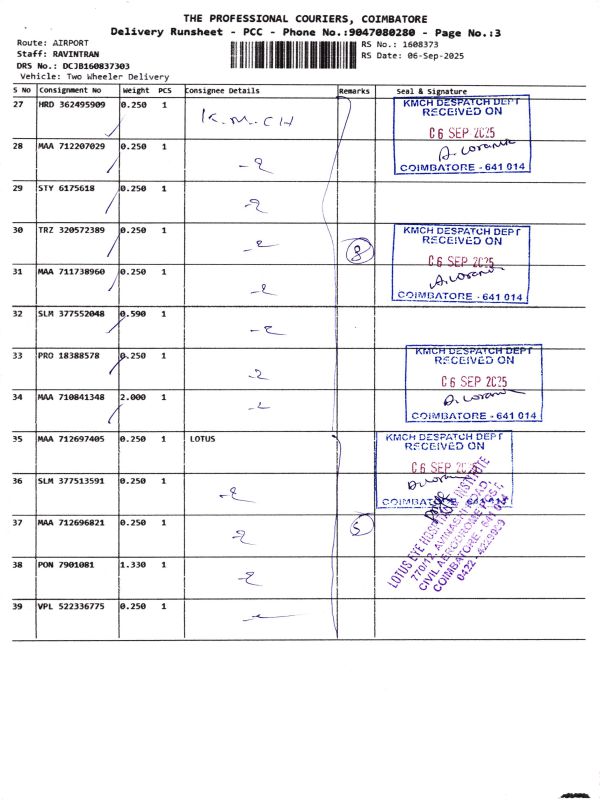 THE PROFESSIONAL COURIERS, COIMBATORE
Delivery Runsheet - PCC - Phone No.:9047080280 - Page No.:3
Route: AIRPORT
Staff: RAVINTRAN
DRS No.: DCJB160837303
Vehicle: Two Wheeler Delivery
RS No.: 1608373
RS Date: 06-Sep-2025
S No Consignment No Weight PCS Consignee Details Remarks Seal & Signature
27 HRD 362495909 0.250 1 K.M.CH
KMCH DESPATCH DEPT
RECEIVED ON
06 SEP 2025
COIMBATORE - 641 014
28 MAA 712207029 0.250 1
29 STY 6175618 0.250 1
30 TRZ 320572389 0.250 1 8
KMCH DESPATCH DEPT
RECEIVED ON
06 SEP 2025
COIMBATORE - 641 014
31 MAA 711738960 0.250 1
32 SLM 377552048 0.590 1
33 PRO 18388578 0.250 1
KMCH DESPATCH DEPT
RECEIVED ON
06 SEP 2025
COIMBATORE - 641 014
34 MAA 710841348 2.000 1
35 MAA 712697405 0.250 1 LOTUS
KMCH DESPATCH DEPT
RECEIVED ON
06 SEP
COIMBAT
36 SLM 377513591 0.250 1
37 MAA 712696821 0.250 1 5
LOTUS EYE HOSPITAL INSTITUTE
770/12, AVINASHI ROAD,
CIVIL AERODROME POST,
COIMBATORE - 641 014
0422 - 4229999
38 PON 7901081 1.330 1
39 VPL 522336775 0.250 1